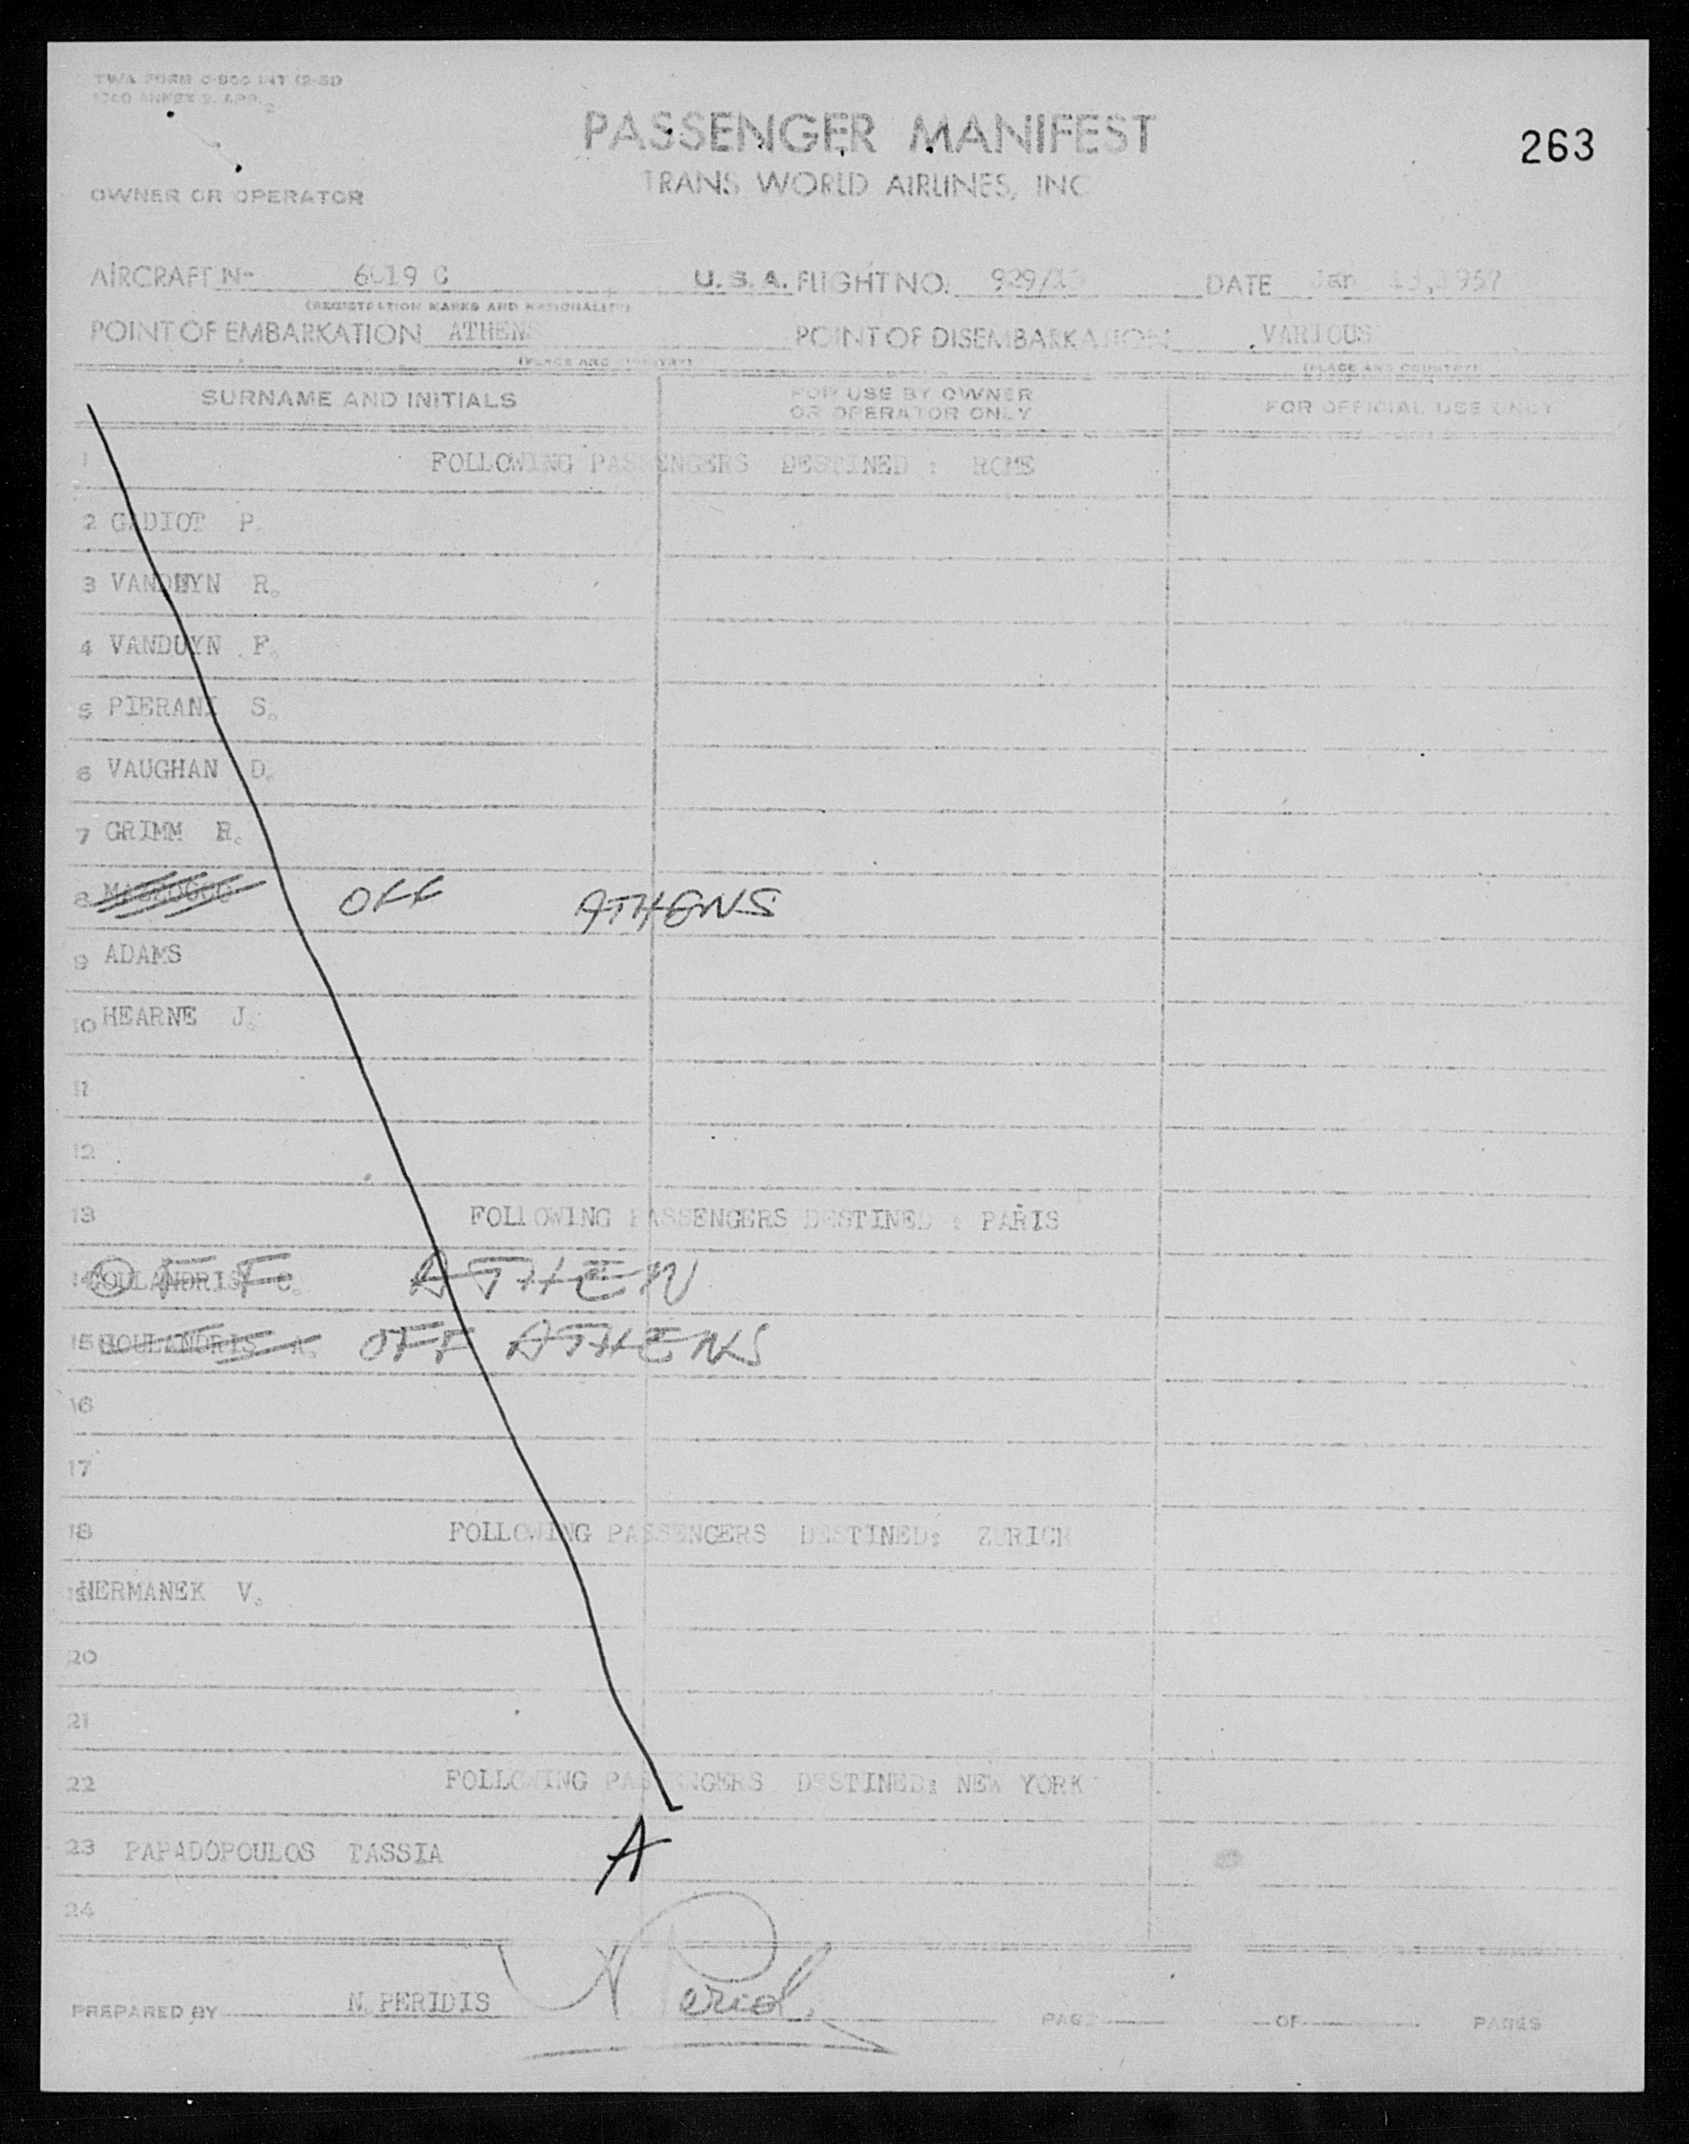 TWA FORM C-800 INT (2-51)
ICAO ANNEX 9, APP. 2
PASSENGER MANIFEST
263
TRANS WORLD AIRLINES, INC
OWNER OR OPERATOR
AIRCRAFT Nº 6019 C U. S. A. FLIGHT NO. 929/13 DATE Jan 13, 1957
(REGISTRATION MARKS AND NATIONALITY)
POINT OF EMBARKATION ATHENS POINT OF DISEMBARKATION VARIOUS
(PLACE AND COUNTRY) (PLACE AND COUNTRY)
SURNAME AND INITIALS FOR USE BY OWNER OR OPERATOR ONLY FOR OFFICIAL USE ONLY
1 FOLLOWING PASSENGERS DESTINED : ROME
2 GADIOT P.
3 VANDUYN R.
4 VANDUYN F.
5 PIERANI S.
6 VAUGHAN D.
7 GRIMM R.
8 OFF ATHENS
9 ADAMS
10 HEARNE J.
11
12
13 FOLLOWING PASSENGERS DESTINED : PARIS
14 GOULANDRIS C. OFF ATHEN
15 GOULANDRIS A. OFF ATHENS
16
17
18 FOLLOWING PASSENGERS DESTINED: ZURICH
19 HERMANEK V.
20
21
22 FOLLOWING PASSENGERS DESTINED: NEW YORK
23 PAPADOPOULOS TASSIA A
24
PREPARED BY N. PERIDIS PAGE OF PAGES